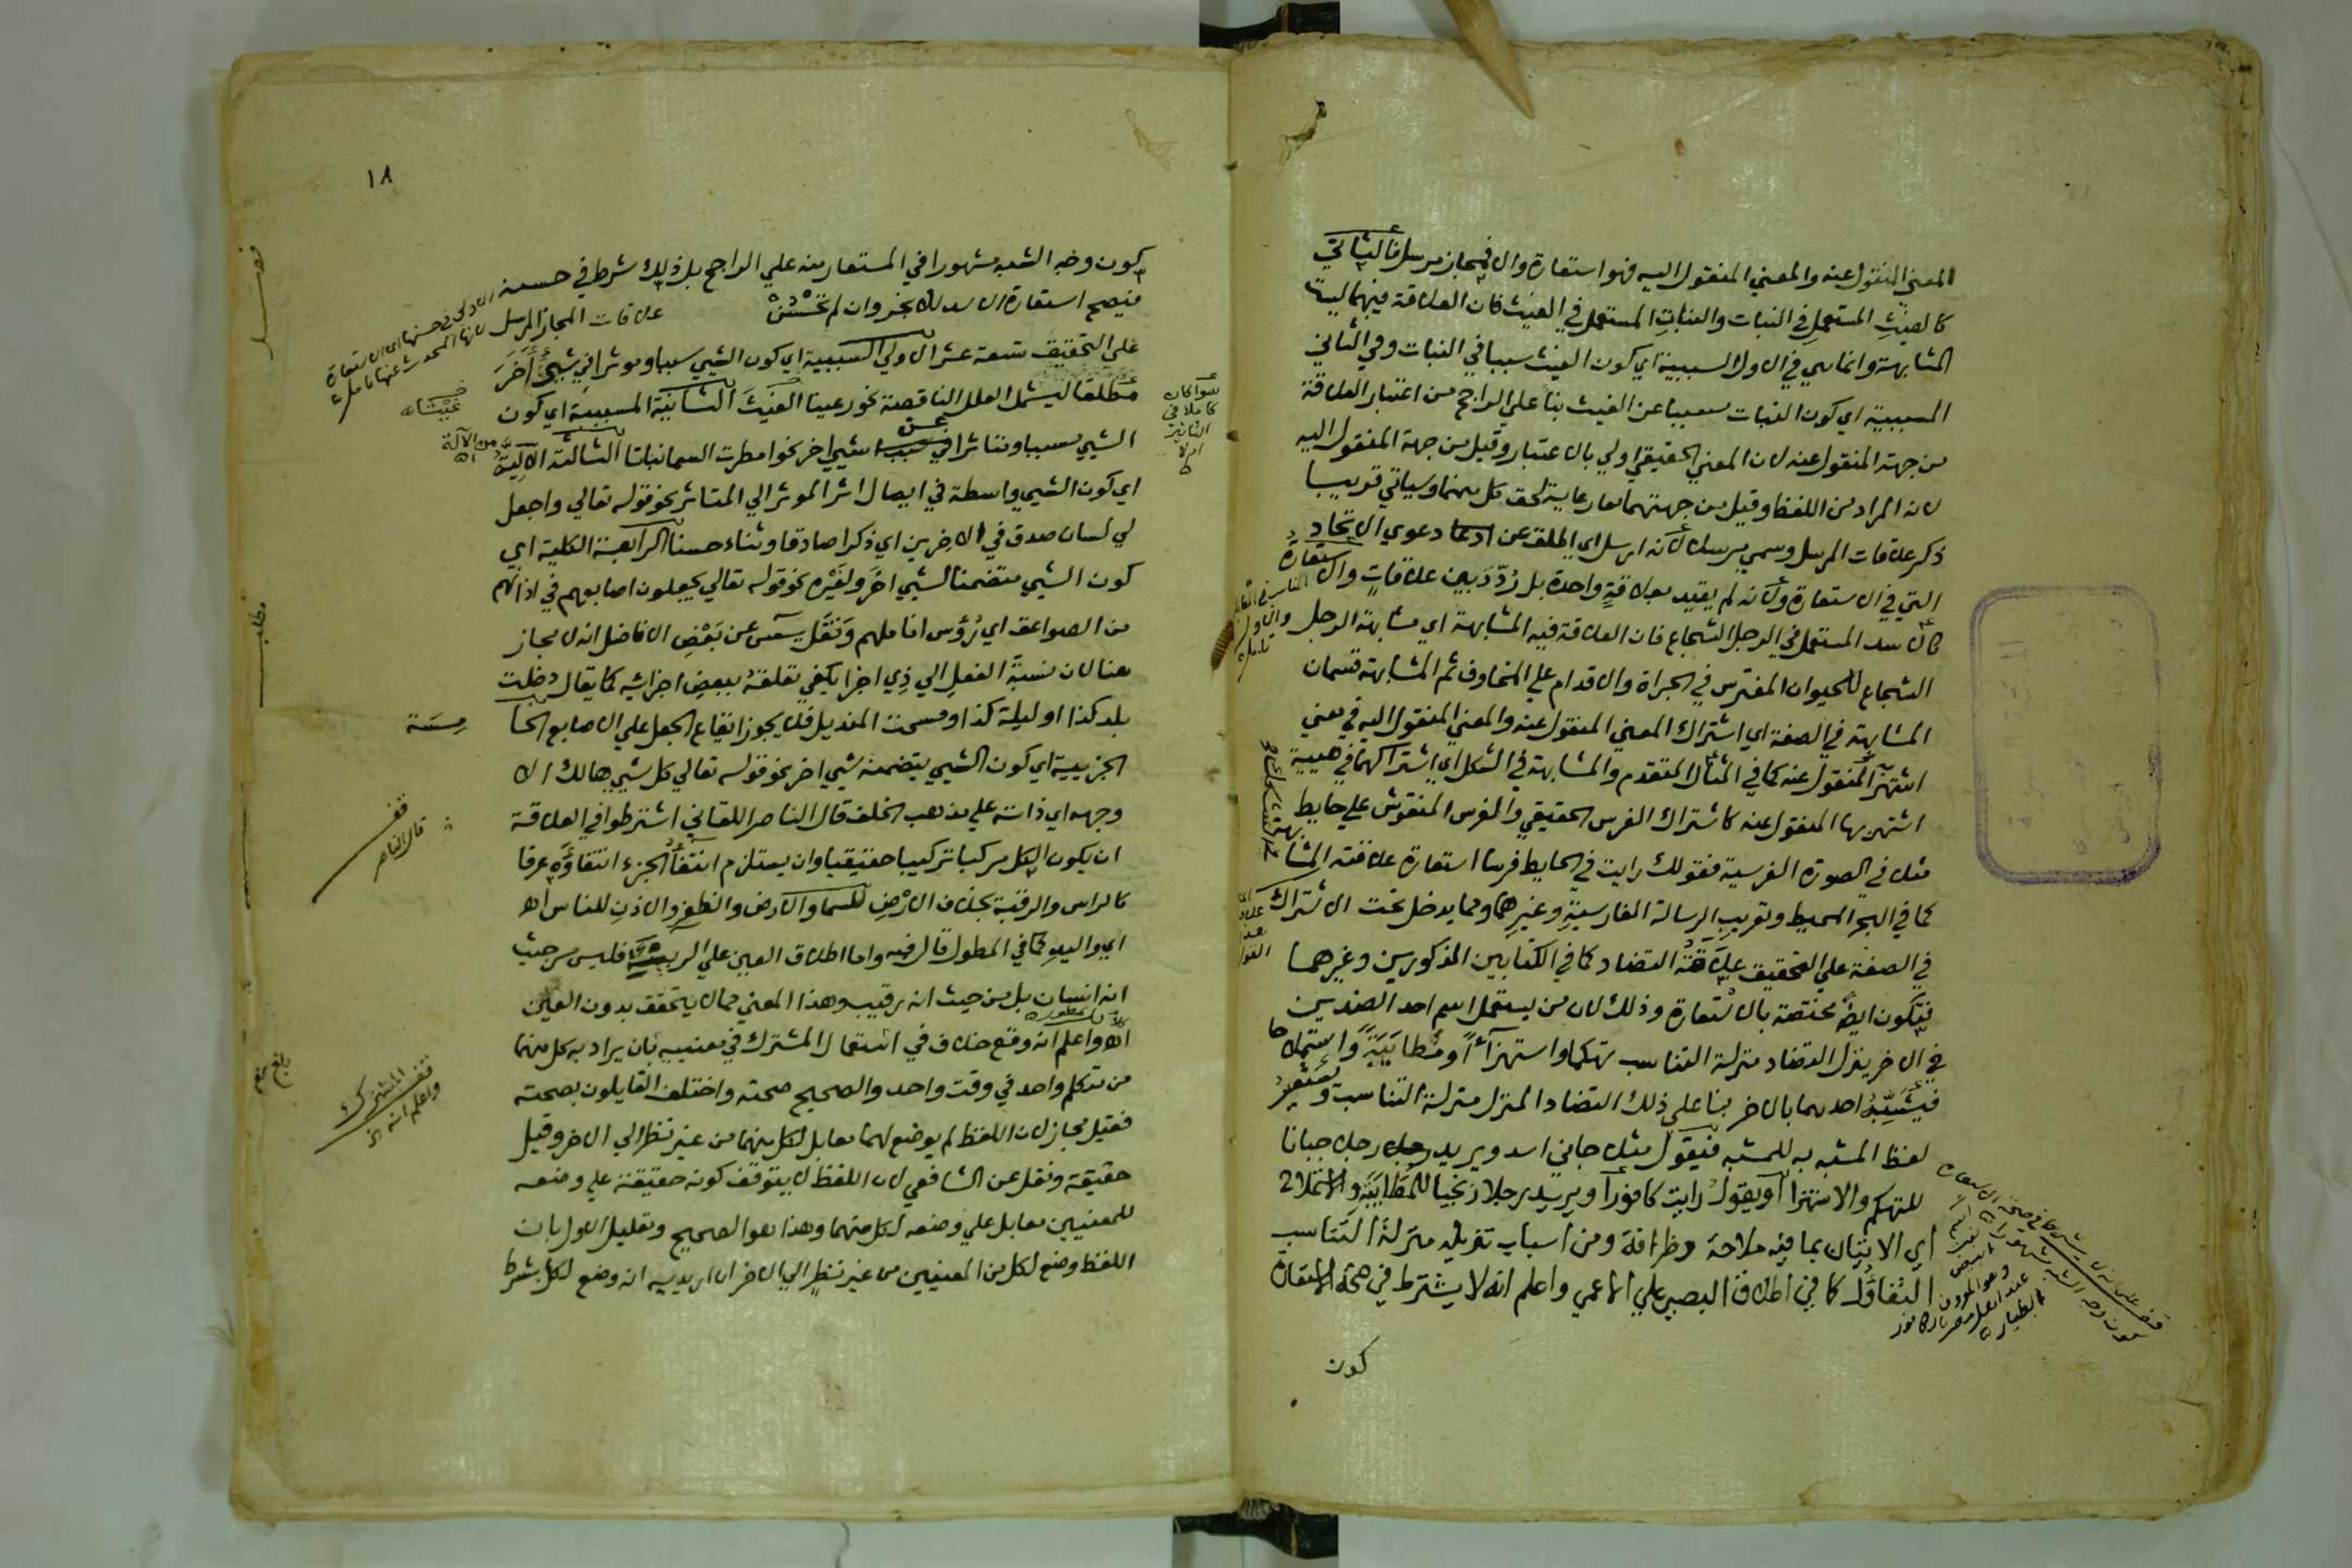 المعني المنقول عنه والمعني المنقول اليه فهو استعارة والا فمجاز مرسل فالثاني
كالغيث المستعمل في النبات والنبات المستعمل في الغيث فان العلاقة فيهما ليست
المشابهة وانما هي في الاول السببية اي كون الغيث سببا في النبات وفي الثاني
المسببية اي كون النبات مسببا عن الغيث بنا علي الراجح من اعتبار العلاقة
من جهة المنقول عنه لان المعني الحقيقي اولي بالاعتبار وقيل من جهة المنقول اليه
لانه المراد من اللفظ وقيل من جهتهما معا رعاية لحق كل منهما وسياتي قريبا
ذكر علاقات المرسل وسمي مرسلا لانه ارسل اي اطلق عن ادعا دعوي الاتحاد
التي في الاستعارة ولانه لم يقيد بعلاقة واحدة بل ردد بين علاقات والاستعارة
كالاسد المستعمل في الرجل الشجاع فان العلاقة فيه المشابهة اي مشابهة الرجل
الشجاع للحيوان المفترس في الجراة والاقدام علي المخاوف ثم المشابهة قسمان
المشابهة في الصفة اي اشتراك المعني المنقول عنه والمعني المنقول اليه في معني
اشتهر المنقول عنه كما في المثال المتقدم والمشابهة في الشكل اي اشتراكهما في هيية
اشتهر بها المنقول عنه كاشتراك الفرس الحقيقي والفرس المنقوش علي حايط
مثلا في الصورة الفرسية فقولك رايت في الحايط فرسا استعارة علاقته المشابهة
كما في البحر المحيط وتعريب الرسالة الفارسية وغيرهما ومما يدخل تحت الاشتراك
في الصفة علي التحقيق علاقة التضاد كما في الكتابين المذكورين وغيرهما
فتكون ايضا مختصة بالاستعارة وذلك لان من يستعمل اسم احد الضدين
في الاخر ينزل التضاد منزلة التناسب تهكما واستهزآء ومطايبة واستملاحا
فيشبه احدهما بالاخر بنا علي ذلك التضاد المنزل منزلة التناسب ويستعير
لفظ المشبه به للمشبه فيقول مثلا جاني اسد ويريد رجلا جبانا
للتهكم والاستهزا او يقول رايت كافورا ويريد رجلا زنجيا للمطايبة والاستملاح
اي الاتيان بما فيه ملاحة وظرافة ومن اسباب تنزيله منزلة التناسب
التفاؤل كما في اطلاق البصير علي الاعمي واعلم انه لا يشترط في صحة الاستعارة
كون
١٨
كون وجه الشبه مشهورا في المستعار منه علي الراجح بل ذلك شرط في حسنه
فيصح استعارة الاسد للابخر وان لم تحسن علاقات المجاز المرسل
علي التحقيق تسعة عشر الاولي السببية اي كون الشيي سببا وموثرا في شيي آخر
مطلقا ليشمل العلل الناقصة نحو رعينا الغيث الثانية المسببية اي كون
الشيي مسببا ومتاثرا عن شيي اخر نحو امطرت السما نباتا الثالثة الآلية
اي كون الشيي واسطة في ايصال اثر الموثر الي المتاثر نحو قوله تعالي واجعل
لي لسان صدق في الاخرين اي ذكرا صادقا وثناء حسنا الرابعة الكلية اي
كون الشيي متضمنا لشيي اخر ولغيره نحو قوله تعالي يجعلون اصابعهم في اذانهم
من الصواعق اي رؤس اناملهم ونقل يس عن بعض الافاضل انه لا مجاز
هنا لان نسبة الفعل الي ذي اجزا يكفي تعلقه ببعض اجزائه كما يقال دخلت
بلد كذا او ليلة كذا ومسحت المنديل فلا يجوز ايقاع الجعل علي الاصابع الخا
مسة
الجزيية اي كون الشيي يتضمنه شيي اخر نحو قوله تعالي كل شيي هالك الا
وجهه اي ذاته علي مذهب الخلف قال الناصر اللقاني اشترطوا في العلاقة
ان يكون الكل مركبا تركيبا حقيقيا وان يستلزم انتفا الجزء انتفاؤه عرفا
كالراس والرقبة بخلاف الارض للسما والارض والظفر والاذن للناس اه
اي واليد كما في المطول قال فيه واما اطلاق العين علي الربيئة فليس من حيث
انه انسان بل من حيث انه رقيب وهذا المعني مما لا يتحقق بدون العين
اه واعلم انه وقع خلاف في استعمال المشترك في معنييه بان يراد به كل منهما
من متكلم واحد في وقت واحد والصحيح صحته واختلف القايلون بصحته
فقيل مجاز لان اللفظ لم يوضع لهما معا بل لكل منهما من غير نظر الي الاخر وقيل
حقيقة ونقل عن الشافعي لان اللفظ لا يتوقف كونه حقيقة علي وضعه
للمعنيين معا بل علي وضعه لكل منهما وهذا هو الصحيح وتعليل الاول بان
اللفظ وضع لكل من المعنيين من غير نظر الي الاخر ان اريد به انه وضع لكل بشرط
سوا كان
كاملا في
التاثير
ام لا
قف
قال الناصر
قف
المشترك
واعلم انه الخ
مطلب